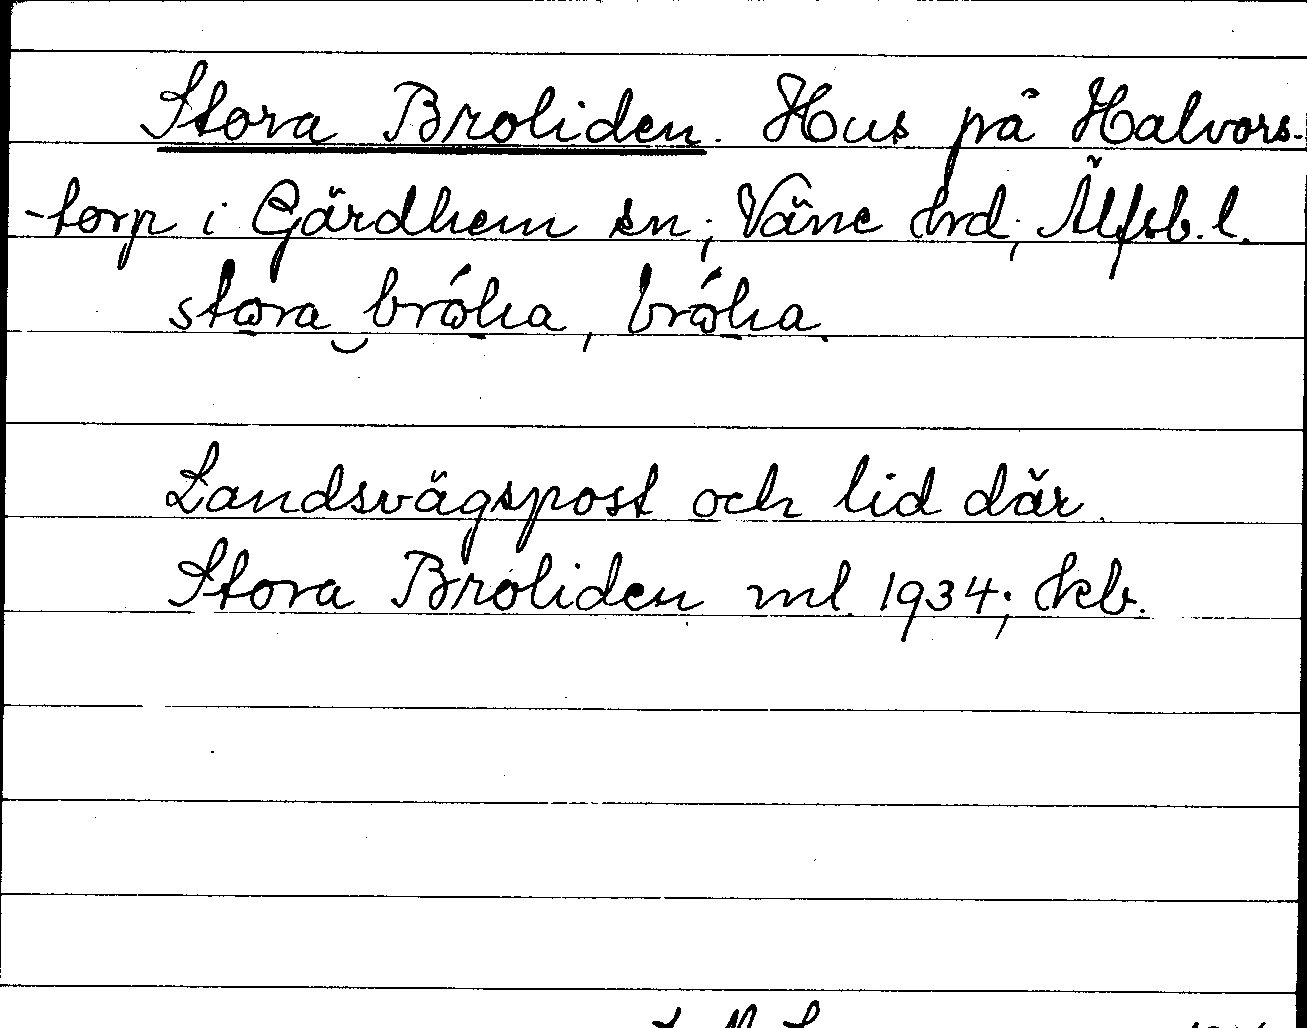 Stora Broliden. Hus på Halvors-
-torp i Gärdhem sn; Väne hrd; Älfsb. l.
stora brólia, brólia.
Landsvägspost och lid där.
Stora Broliden ml. 1934; kb.